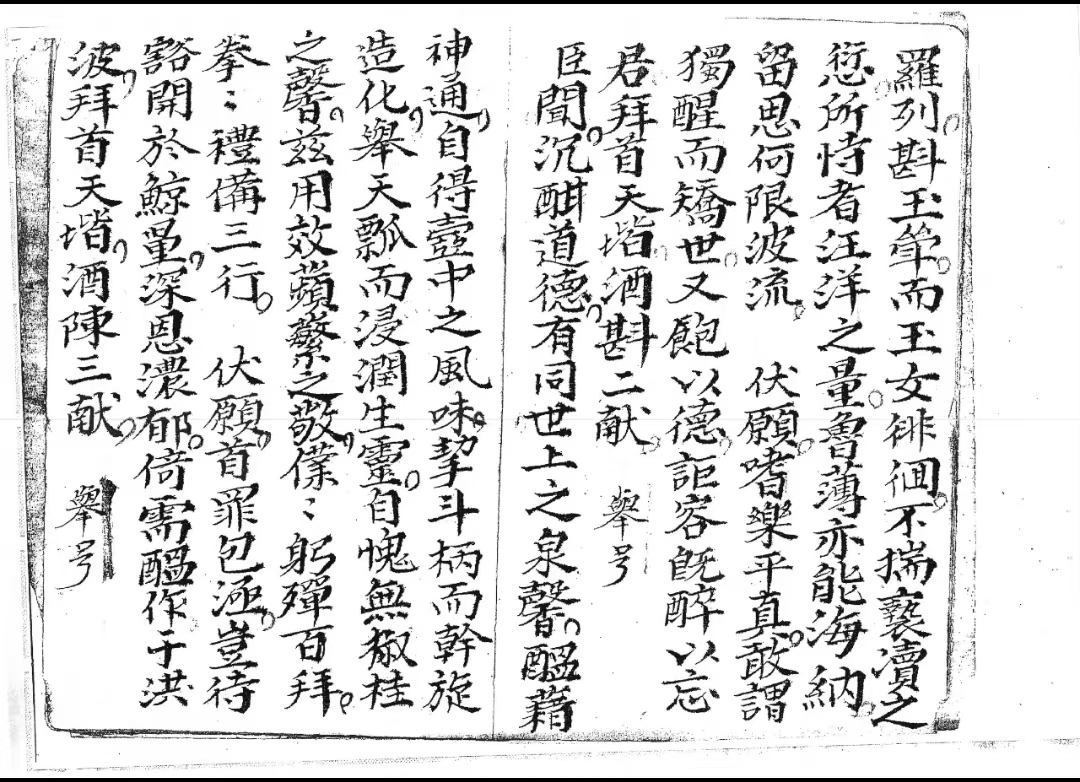 羅列斟玉斝而玉女徘徊不揣褻瀆之
愆所恃者汪洋之量魯薄亦能海納
留思何限波流　伏願嗜樂平真敢謂
獨醒而矯世又飽以德詎容既醉以忘
君拜首天堦酒斟二献　舉号
臣聞沉酣道德有同世上之泉馨醖藉
神通自得壼中之風味挈斗柄而幹旋
造化舉天瓢而浸潤生靈自愧無椒桂
之馨兹用效蘋蘩之敬僕〻躬殫百拜
拳〻禮備三行　伏願首罪包極豈待
豁開於鯨量深恩濃郁倚需醖作于洪
波拜首天堦酒陳三献　舉号